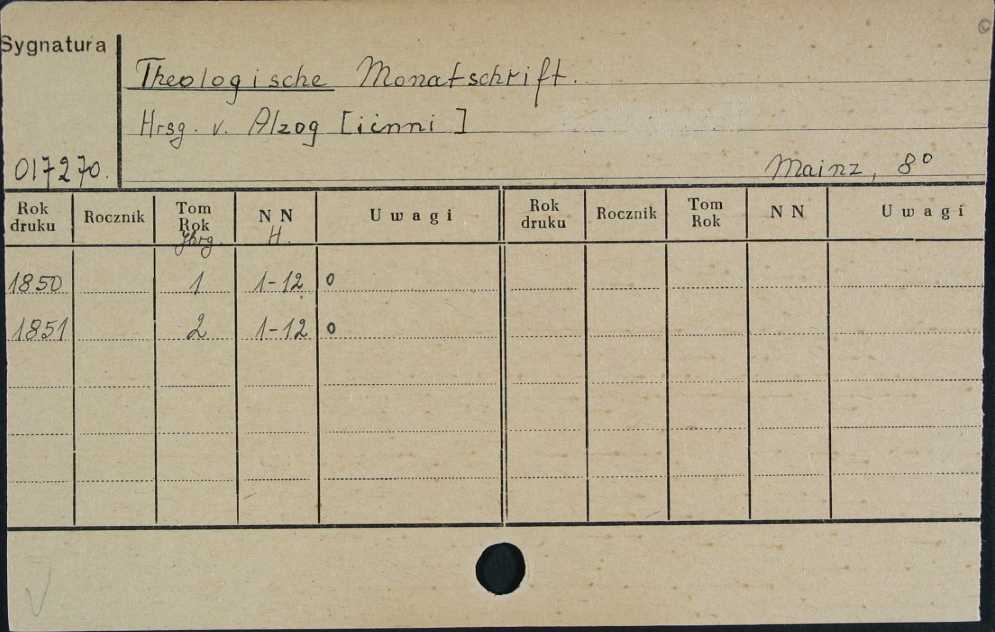 Sygnatura
Theologische Monatschrift.
Hrsg. v. Alzog [i inni]
017270.
Mainz, 8°
Rok druku Rocznik Tom Rok NN Uwagi Rok druku Rocznik Tom Rok NN Uwagi
Jhrg. H.
1850 1 1-12 o
1851 2 1-12 o